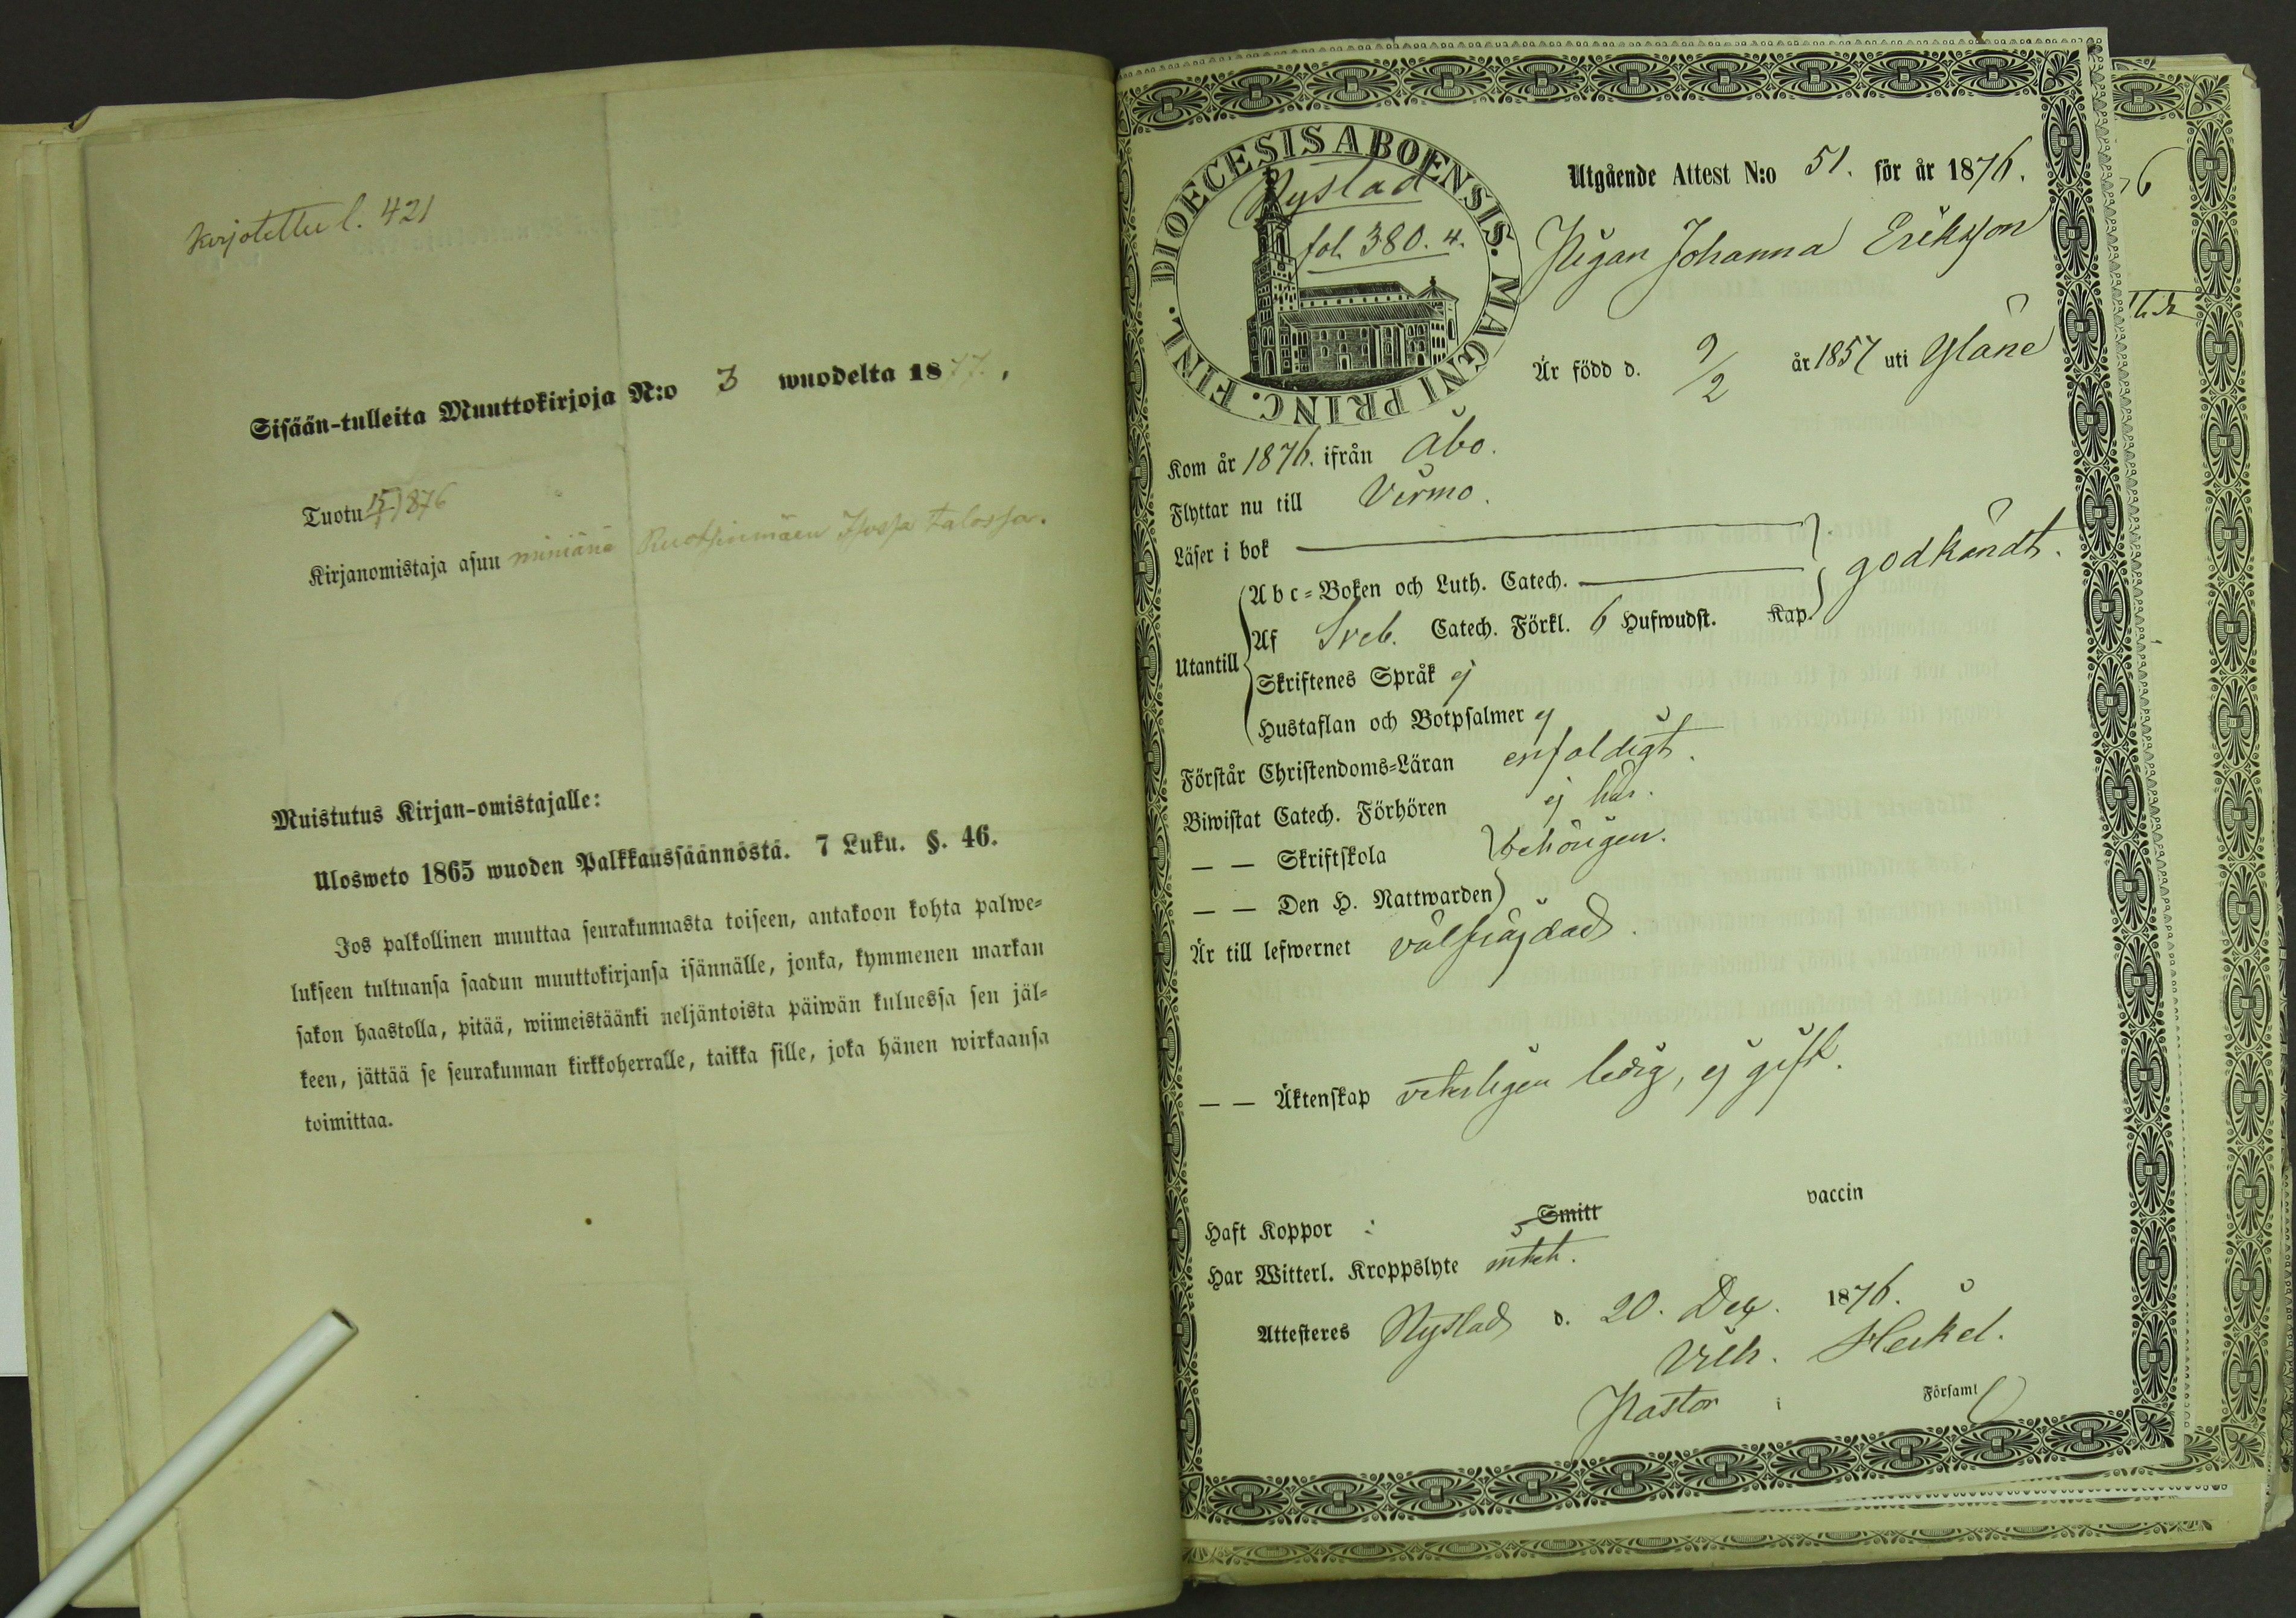 Kirjotettu l. 421
Sisään-tulleita Muuttokirjoja N:o 3 wuodelta 1877.
Tuotu 15/1 1876
Kirjanomistaja asuu miniänä Ruotsinmäen Isossa talossa.
Muistutus Kirjan-omistajalle:
Ulosweto 1865 wuoden Palkkaussäännöstä. 7 Luku. §. 46.
Jos palkollinen muuttaa seurakunnasta toiseen, antakoon kohta palwe-
lukseen tultuansa saadun muuttokirjansa isännälle, jonka, kymmenen markan
sakon haastolla, pitää, wiimeistäänki neljäntoista päiwän kuluessa sen jäl-
keen, jättää se seurakunnan kirkkoherralle, taikka sille, joka hänen wirkaansa
toimittaa.
DIOECESIS ABOENSIS. MAGNI PRINC. FINL.
Nystad
fol. 380. 4.
Utgående Attest N:o 51. för år 1876.
Pigan Johanna Eriksson
Är född d. 9/2 år 1857 uti Yläne
Kom år 1876. ifrån Åbo.
Flyttar nu till Virmo.
Läser i bok
Abc-Boken och Luth. Catech.
godkändt.
Utantill
Af Sveb. Catech. Förkl. 6 Hufwudst. Kap.
Skriftenes Språk ej
Hustaflan och Botpsalmer ej
Förstår Christendoms-Läran enfaldigt.
Biwistat Catech. Förhören ej här.
— — Skriftskola
behörigen.
— — Den H. Nattwarden
Är till lefwernet välfrägdad.
— — Äktenskap veterligen ledig, ej gift.
Haft Koppor Smitt vaccin
Har Witterl. Kroppslyte intet.
Attesteres Nystad d. 20. Dec. 1876.
Vilh. Heikel.
Pastor i Församl